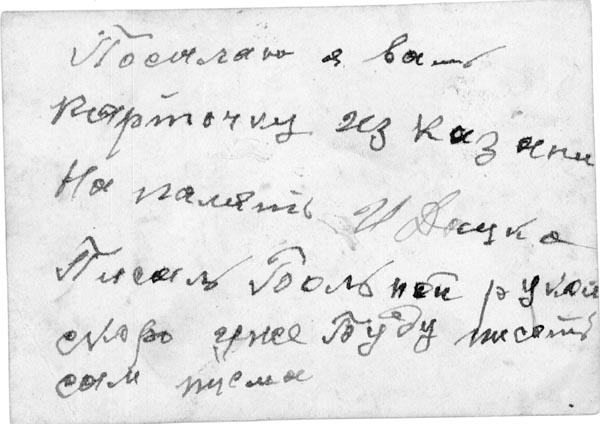 Посилаю я вамъ
карточку из казани
На память И Дацко
Писалъ Больной рукой
скоро уже Буду писать
сам писма